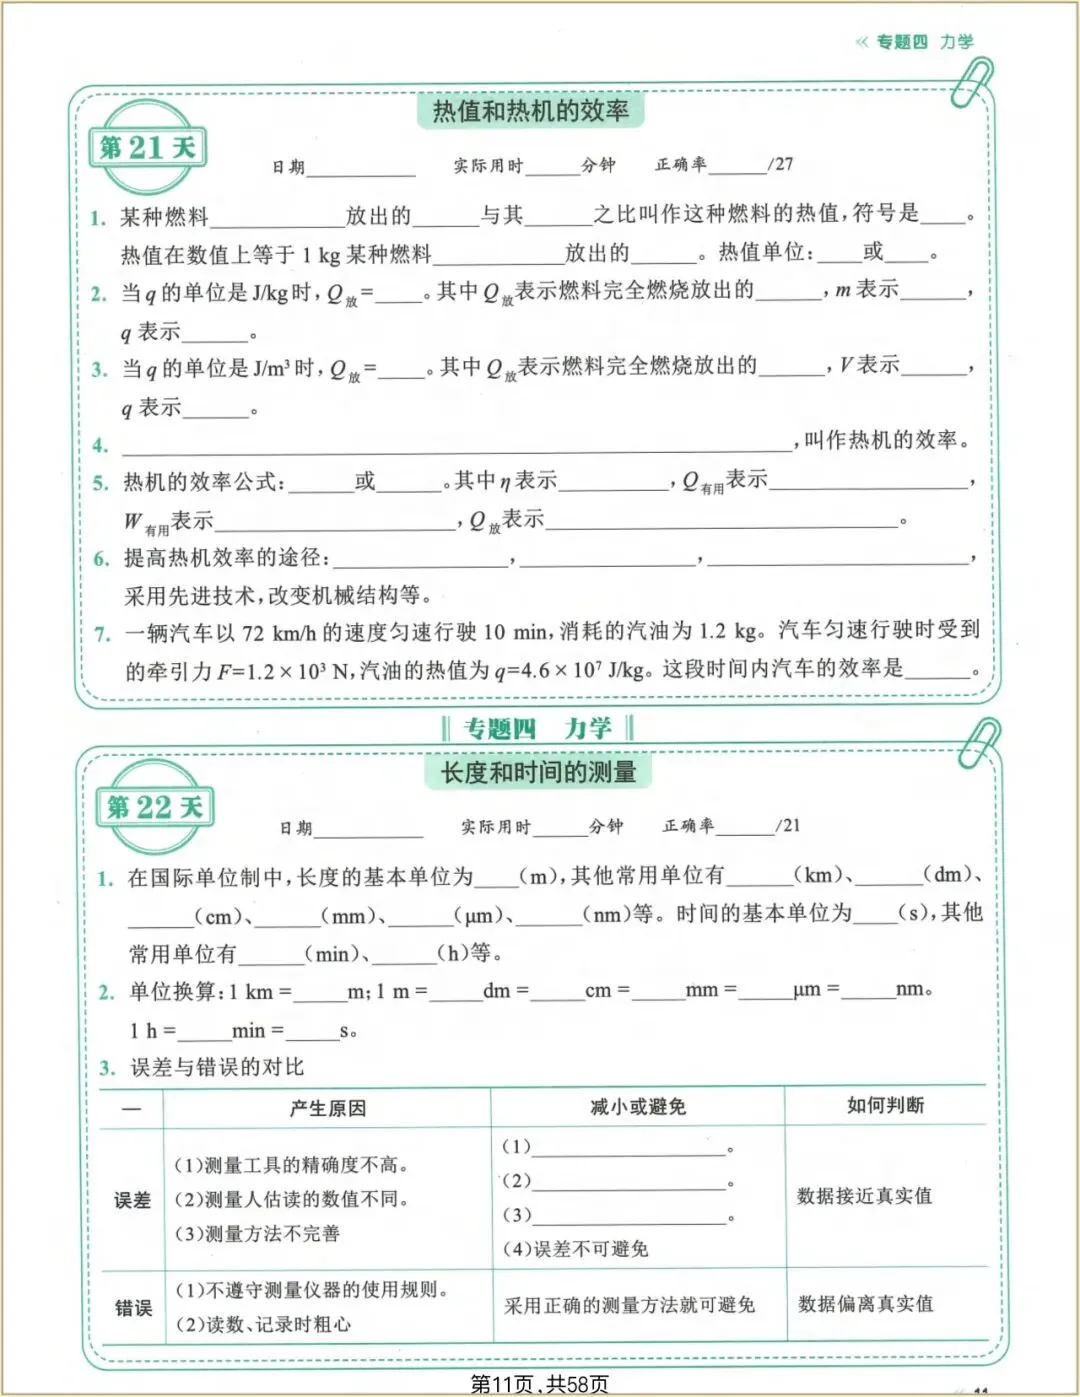 ≪ 专题四 力学
热值和热机的效率
第21天
日期________ 实际用时____分钟 正确率____/27
1. 某种燃料__________放出的_____与其_____之比叫作这种燃料的热值,符号是___。
热值在数值上等于1 kg某种燃料__________放出的_____。热值单位:___或___。
2. 当q的单位是J/kg时,Q放=___。其中Q放表示燃料完全燃烧放出的_____,m表示_____,
q表示_____。
3. 当q的单位是J/m³时,Q放=___。其中Q放表示燃料完全燃烧放出的_____,V表示_____,
q表示_____。
4. ________________________________________,叫作热机的效率。
5. 热机的效率公式:_____或_____。其中η表示________,Q有用表示_______________,
W有用表示__________________,Q放表示__________________________。
6. 提高热机效率的途径:_____________,_____________,____________________,
采用先进技术,改变机械结构等。
7. 一辆汽车以72 km/h的速度匀速行驶10 min,消耗的汽油为1.2 kg。汽车匀速行驶时受到
的牵引力F=1.2×10³ N,汽油的热值为q=4.6×10⁷ J/kg。这段时间内汽车的效率是_____。
专题四 力学
长度和时间的测量
第22天
日期________ 实际用时____分钟 正确率____/21
1. 在国际单位制中,长度的基本单位为___(m),其他常用单位有_____(km)、_____(dm)、
_____(cm)、_____(mm)、_____(μm)、_____(nm)等。时间的基本单位为___(s),其他
常用单位有_____(min)、_____(h)等。
2. 单位换算:1 km=____m;1 m=____dm=____cm=____mm=____μm=____nm。
1 h=____min=____s。
3. 误差与错误的对比
— 产生原因 减小或避免 如何判断
误差
(1)测量工具的精确度不高。
(2)测量人估读的数值不同。
(3)测量方法不完善
(1)______________。
(2)______________。
(3)______________。
(4)误差不可避免
数据接近真实值
错误
(1)不遵守测量仪器的使用规则。
(2)读数、记录时粗心
采用正确的测量方法就可避免
数据偏离真实值
第11页,共58页